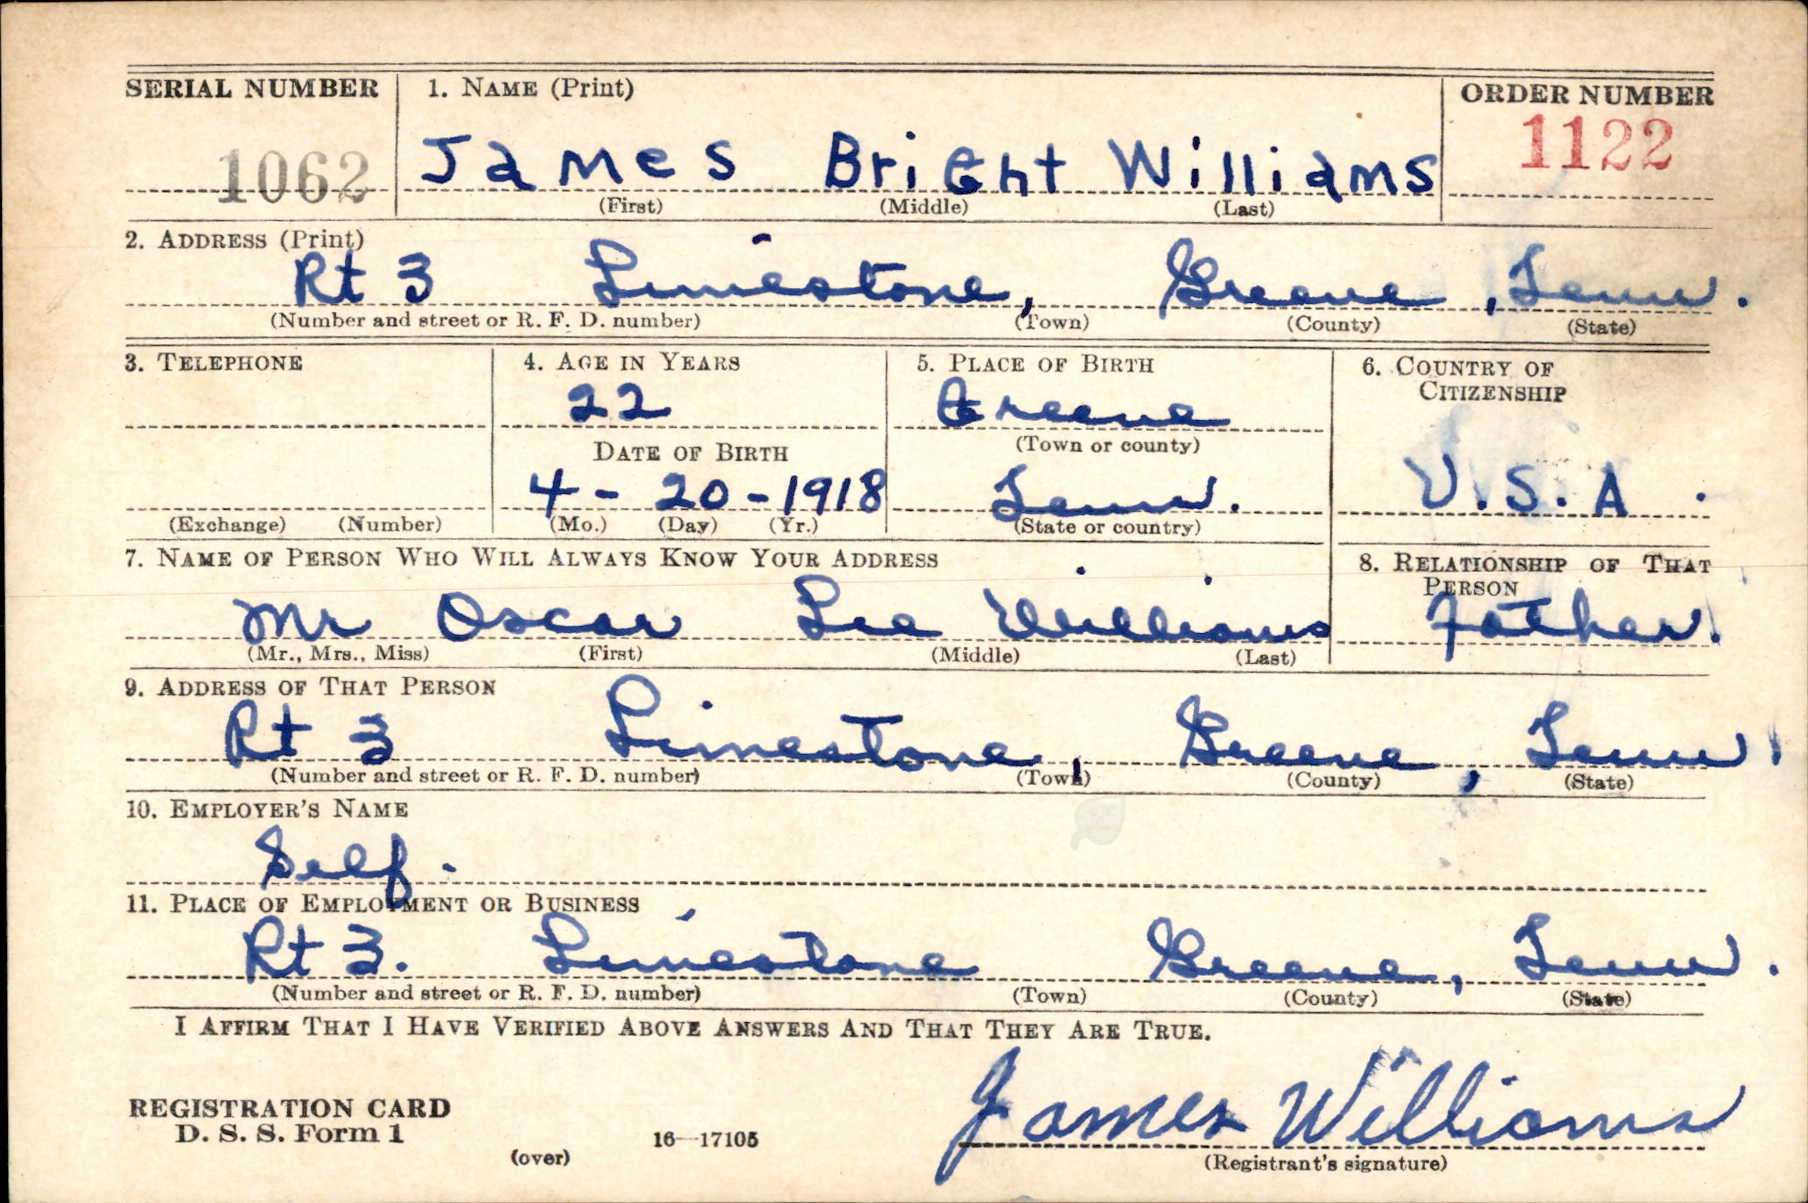 SERIAL NUMBER 1. NAME (Print) ORDER NUMBER
1062 James Bright Williams 1122
(First) (Middle) (Last)
2. ADDRESS (Print)
Rt 3 Limestone, Greene, Tenn.
(Number and street or R. F. D. number) (Town) (County) (State)
3. TELEPHONE 4. AGE IN YEARS 5. PLACE OF BIRTH 6. COUNTRY OF
CITIZENSHIP
22 Greene
DATE OF BIRTH (Town or county)
4-20-1918 Tenn. U.S.A.
(Exchange) (Number) (Mo.) (Day) (Yr.) (State or country)
7. NAME OF PERSON WHO WILL ALWAYS KNOW YOUR ADDRESS 8. RELATIONSHIP OF THAT
PERSON
Mr Oscar Lee Williams Father.
(Mr., Mrs., Miss) (First) (Middle) (Last)
9. ADDRESS OF THAT PERSON
Rt 3 Limestone, Greene, Tenn.
(Number and street or R. F. D. number) (Town) (County) (State)
10. EMPLOYER'S NAME
Self.
11. PLACE OF EMPLOYMENT OR BUSINESS
Rt 3. Limestone Greene, Tenn.
(Number and street or R. F. D. number) (Town) (County) (State)
I AFFIRM THAT I HAVE VERIFIED ABOVE ANSWERS AND THAT THEY ARE TRUE.
James Williams
REGISTRATION CARD
D. S. S. Form 1
(over) 16—17105 (Registrant's signature)